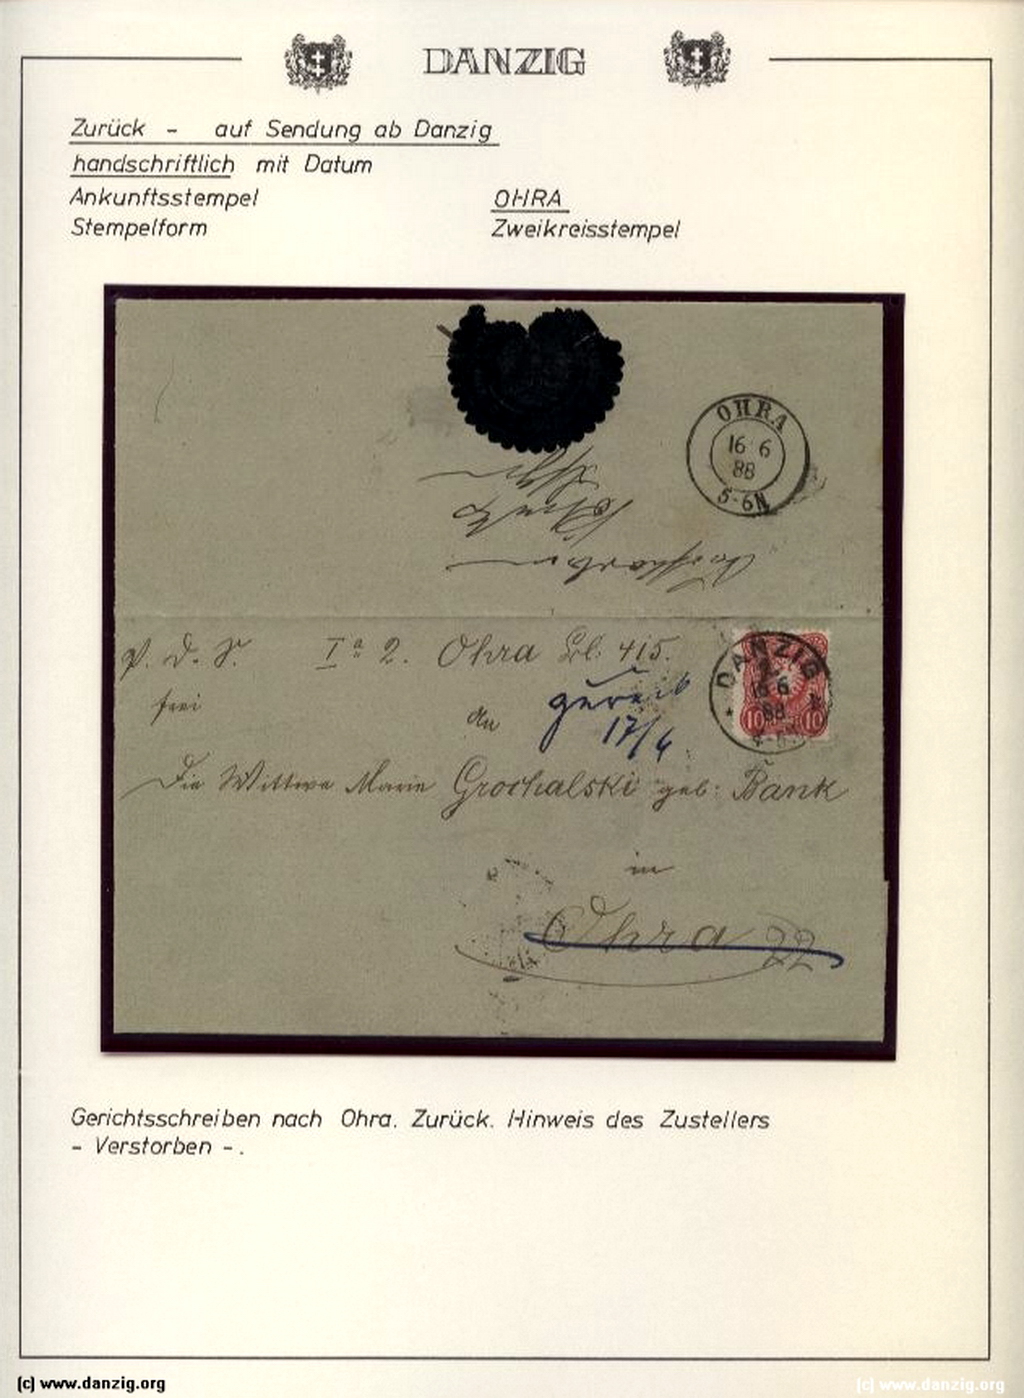 DANZIG
Zurück - auf Sendung ab Danzig
handschriftlich mit Datum
Ankunftsstempel OHRA
Stempelform Zweikreisstempel
OHRA
16 6
88
5-6N
P. d. S. Iª 2. Ohra Bl: 415.
DANZIG
16 6
88
10 10
frei
zurück
An
17/6
Die Wittwe Marie Grochalski geb: Bank
in
Ohra 22
Gerichtsschreiben nach Ohra. Zurück. Hinweis des Zustellers
- Verstorben -.
(c) www.danzig.org (c) www.danzig.org